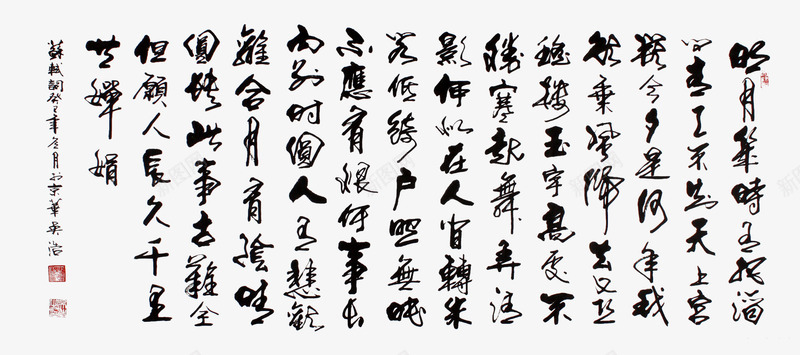 明月幾時有把酒
問青天不知天上宮
闕今夕是何年我
欲乘風歸去又恐
瓊樓玉宇高處不
勝寒起舞弄清
影何似在人間轉朱
閣低綺戶照無眠
不應有恨何事長
向別時圓人有悲歡
離合月有陰晴
圓缺此事古難全
但願人長久千里
共嬋娟
蘇軾詞癸巳年冬月於京華吳